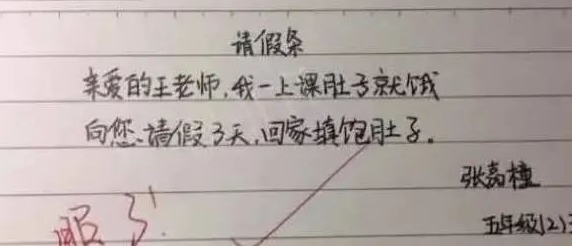 请假条
亲爱的王老师,我一上课肚子就饿
向您请假3天,回家填饱肚子。
张嘉橦
五年级(2)
服了!